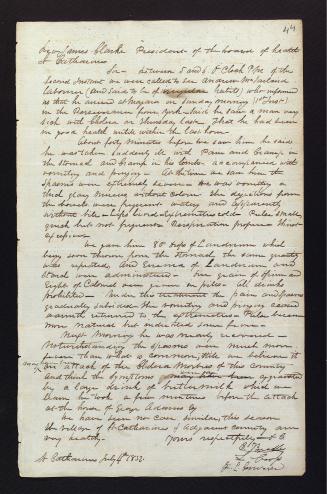 44
James Clarke President of the board of health
St Catharines
Sir - between 5 and 6 O'Clock P.M. of the
second Instant we were called to see Andrew McFarland
labourer (and said to be of irregular habits) who informed
us that he arrived at Niagara on Sunday morning (1st Inst)
in the from York which he saw a man very
sick with Cholera on Thursday last. That he had been
in good health until within the last hour
About forty minutes before we saw him he said
he was taken suddenly ill with Pain and Cramp in
the stomach and Cramp in his limbs accompanied with
vomiting and purging. At the time we saw him the
Spasms were extremely severe. He was vomiting a
thick without colour. The dejections from
the bowels were frequent watery and apparently
without bile. Lips blue extremities cold. Pulse small
quick but not frequent. Perspiration profuse. Thirst
excessive.
We gave him 80 drops of Laudanum which
being soon thrown from the stomach the same quantity
was repeated, and Enema of Laudanum and
were administered. One grain of Opium and
Eight of Calomel were given in pills. All drinks
prohibited. Under this treatment the pain and spasms
gradually subsided the vomiting and purging ceased
warmth returned to the extremities. Pulse became
more natural but indicated some fever.
Next Morning he was nearly recovered.
Notwithstanding the spasms were much more
severe than what is common, we believe it
an attack of the Cholera Morbus of this Country
and think the symptoms were aggravated
by a large drink of buttermilk which we
learn he took a few minutes before the attack
at the house of George Adams Esq
We have seen no Case similar this season
the village of St Catharines & Adjacent country are
very healthy.
Yours respectfully
St Catharines July 4th 1832.